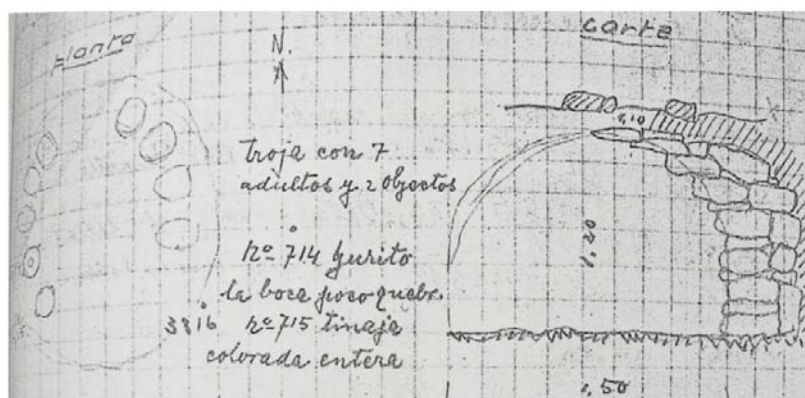 planta
N.
corte
troja con 7
adultos y 2 objectos
nº 714 yurito
la boca poco quebr.
3816 nº 715 tinaja
colorada entera
0,10
1,20
1,50